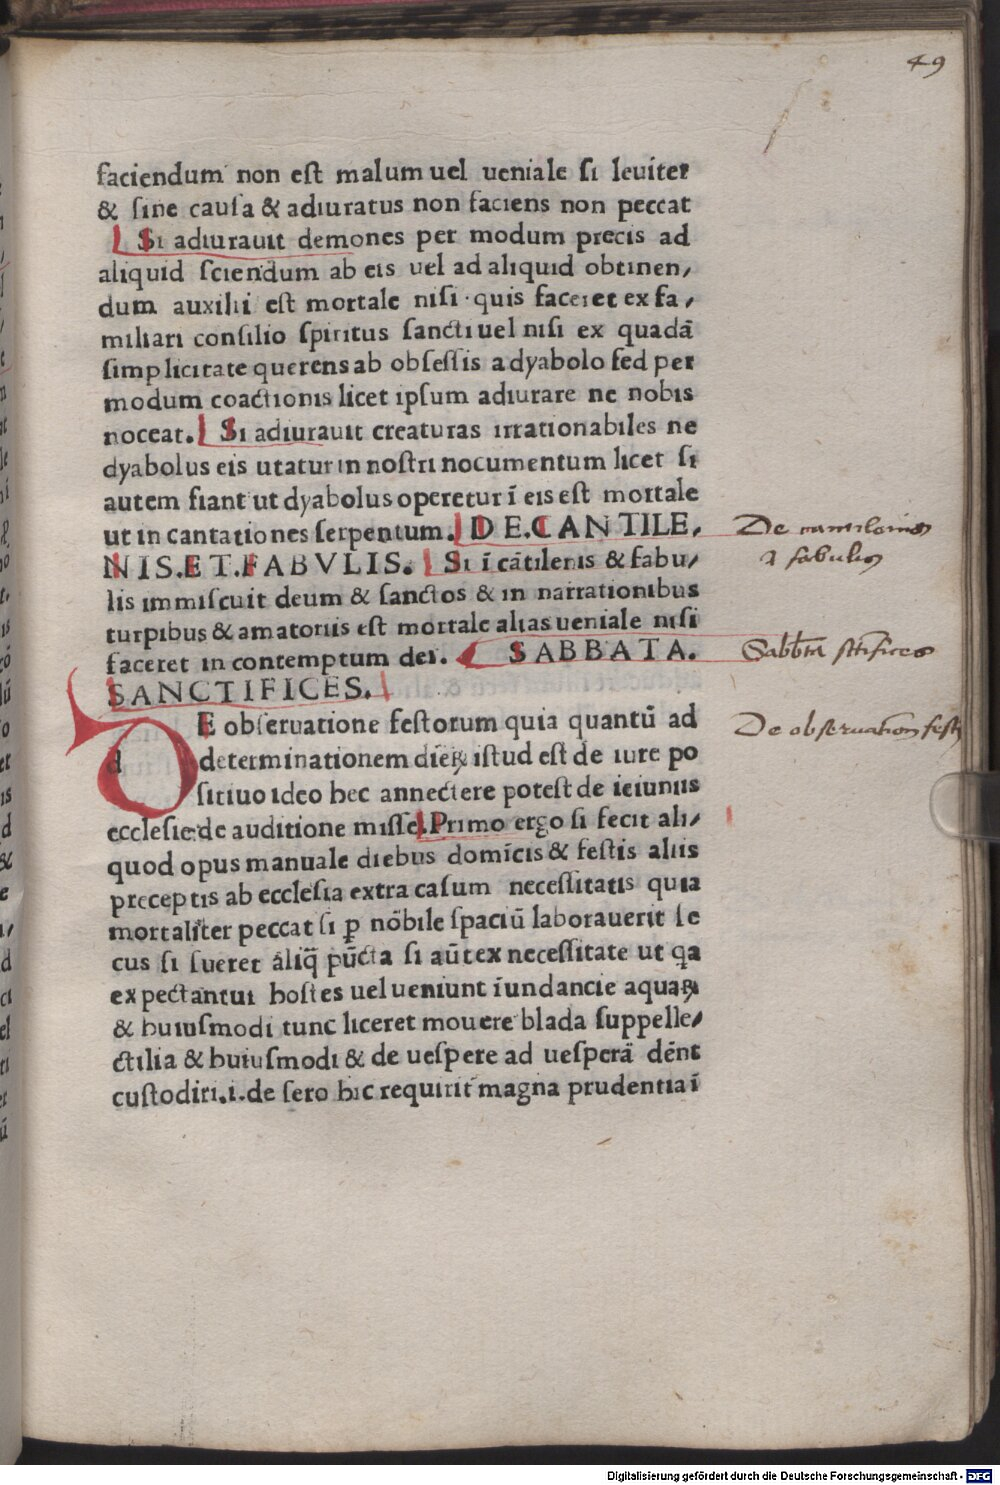 49
faciendum non est malum uel ueniale si leuiter
& sine causa & adiuratus non faciens non peccat
Si adiurauit demones per modum precis ad
aliquid sciendum ab eis uel ad aliquid obtinen,
dum auxilii est mortale nisi quis faceret ex fa,
miliari consilio spiritus sancti uel nisi ex quadā
simplicitate querens ab obsessis a dyabolo sed per
modum coactionis licet ipsum adiurare ne nobis
noceat. Si adiurauit creaturas irrationabiles ne
dyabolus eis utatur in nostri nocumentum licet si
autem fiant ut dyabolus operetur ī eis est mortale
ut in cantationes serpentum. DE.CANTILE,
NIS.ET.FABVLIS. Si ī cātilenis & fabu,
lis immiscuit deum & sanctos & in narrationibus
turpibus & amatoriis est mortale alias ueniale nisi
faceret in contemptum dei. SABBATA.
SANCTIFICES.
d E obseruatione festorum quia quantū ad
determinationem dieꝝ istud est de iure po
sitiuo ideo hec annectere potest de ieiuniis
ecclesie:de auditione misse. Primo ergo si fecit ali,
quod opus manuale diebus domīcis & festis aliis
preceptis ab ecclesia extra casum necessitatis quia
mortaliter peccat si ꝑ nōbile spaciū laborauerit se
cus si fueret aliq̄ pūcta si aūt ex necessitate ut qa
expectantur hostes uel ueniunt īundancie aquaꝝ
& huiusmodi tunc liceret mouere blada suppelle,
ctilia & huiusmodi & de uespere ad uesperā dēnt
custodiri.i.de sero hic requirit magna prudentia ī
De cantilenis
& fabulis
Sabbata sctifices
De obseruation fest
Digitalisierung gefördert durch die Deutsche Forschungsgemeinschaft - DFG